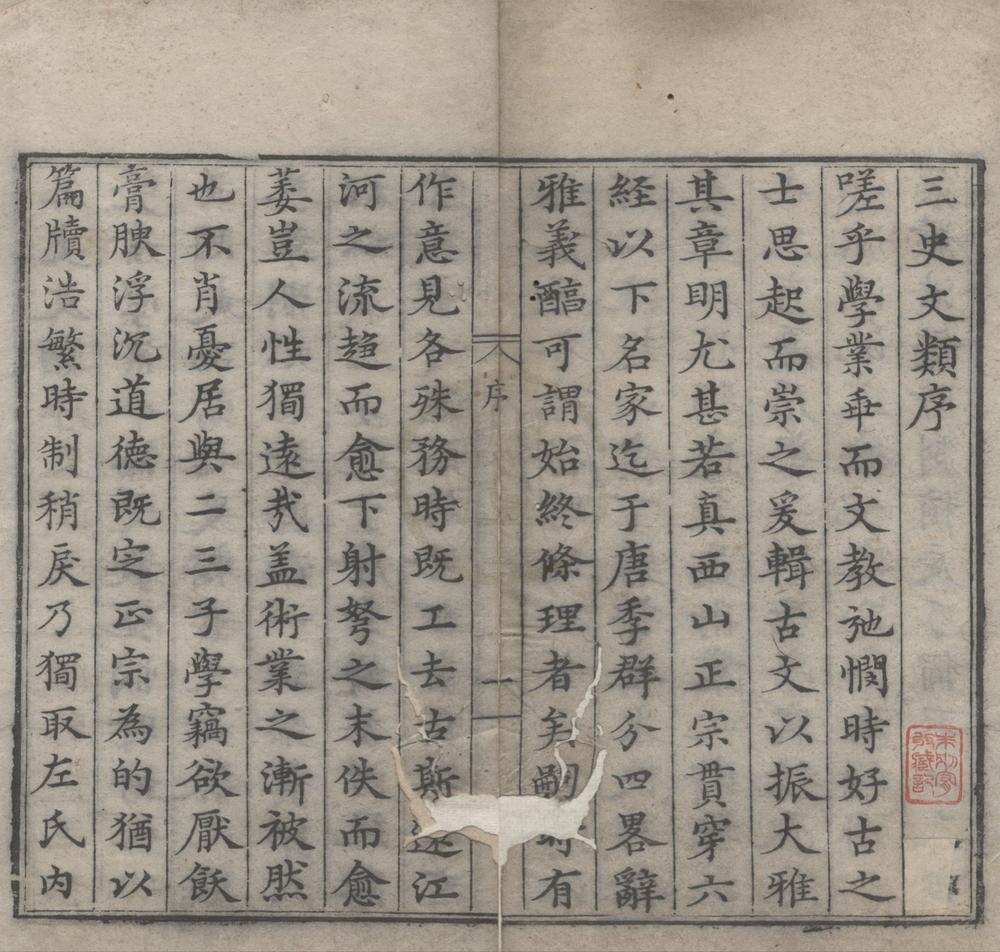 三史文類序
嗟乎學業乖而文教弛憫時好古之
士思起而崇之爰輯古文以振大雅
其章明尤甚若真西山正宗貫穿六
経以下名家迄于唐季群分四畧辭
雅義醕可謂始終條理者矣嗣時有
序
一
作意見各殊務時既工去古斯遠江
河之流趨而愈下射弩之末佚而愈
萎豈人性獨遠㢤盖術業之漸被然
也不肖憂居與二三子學竊欲厭飫
膏腴浮沉道德既㝎正宗為的猶以
篇牘浩繁時制稍戾乃獨取左氏内